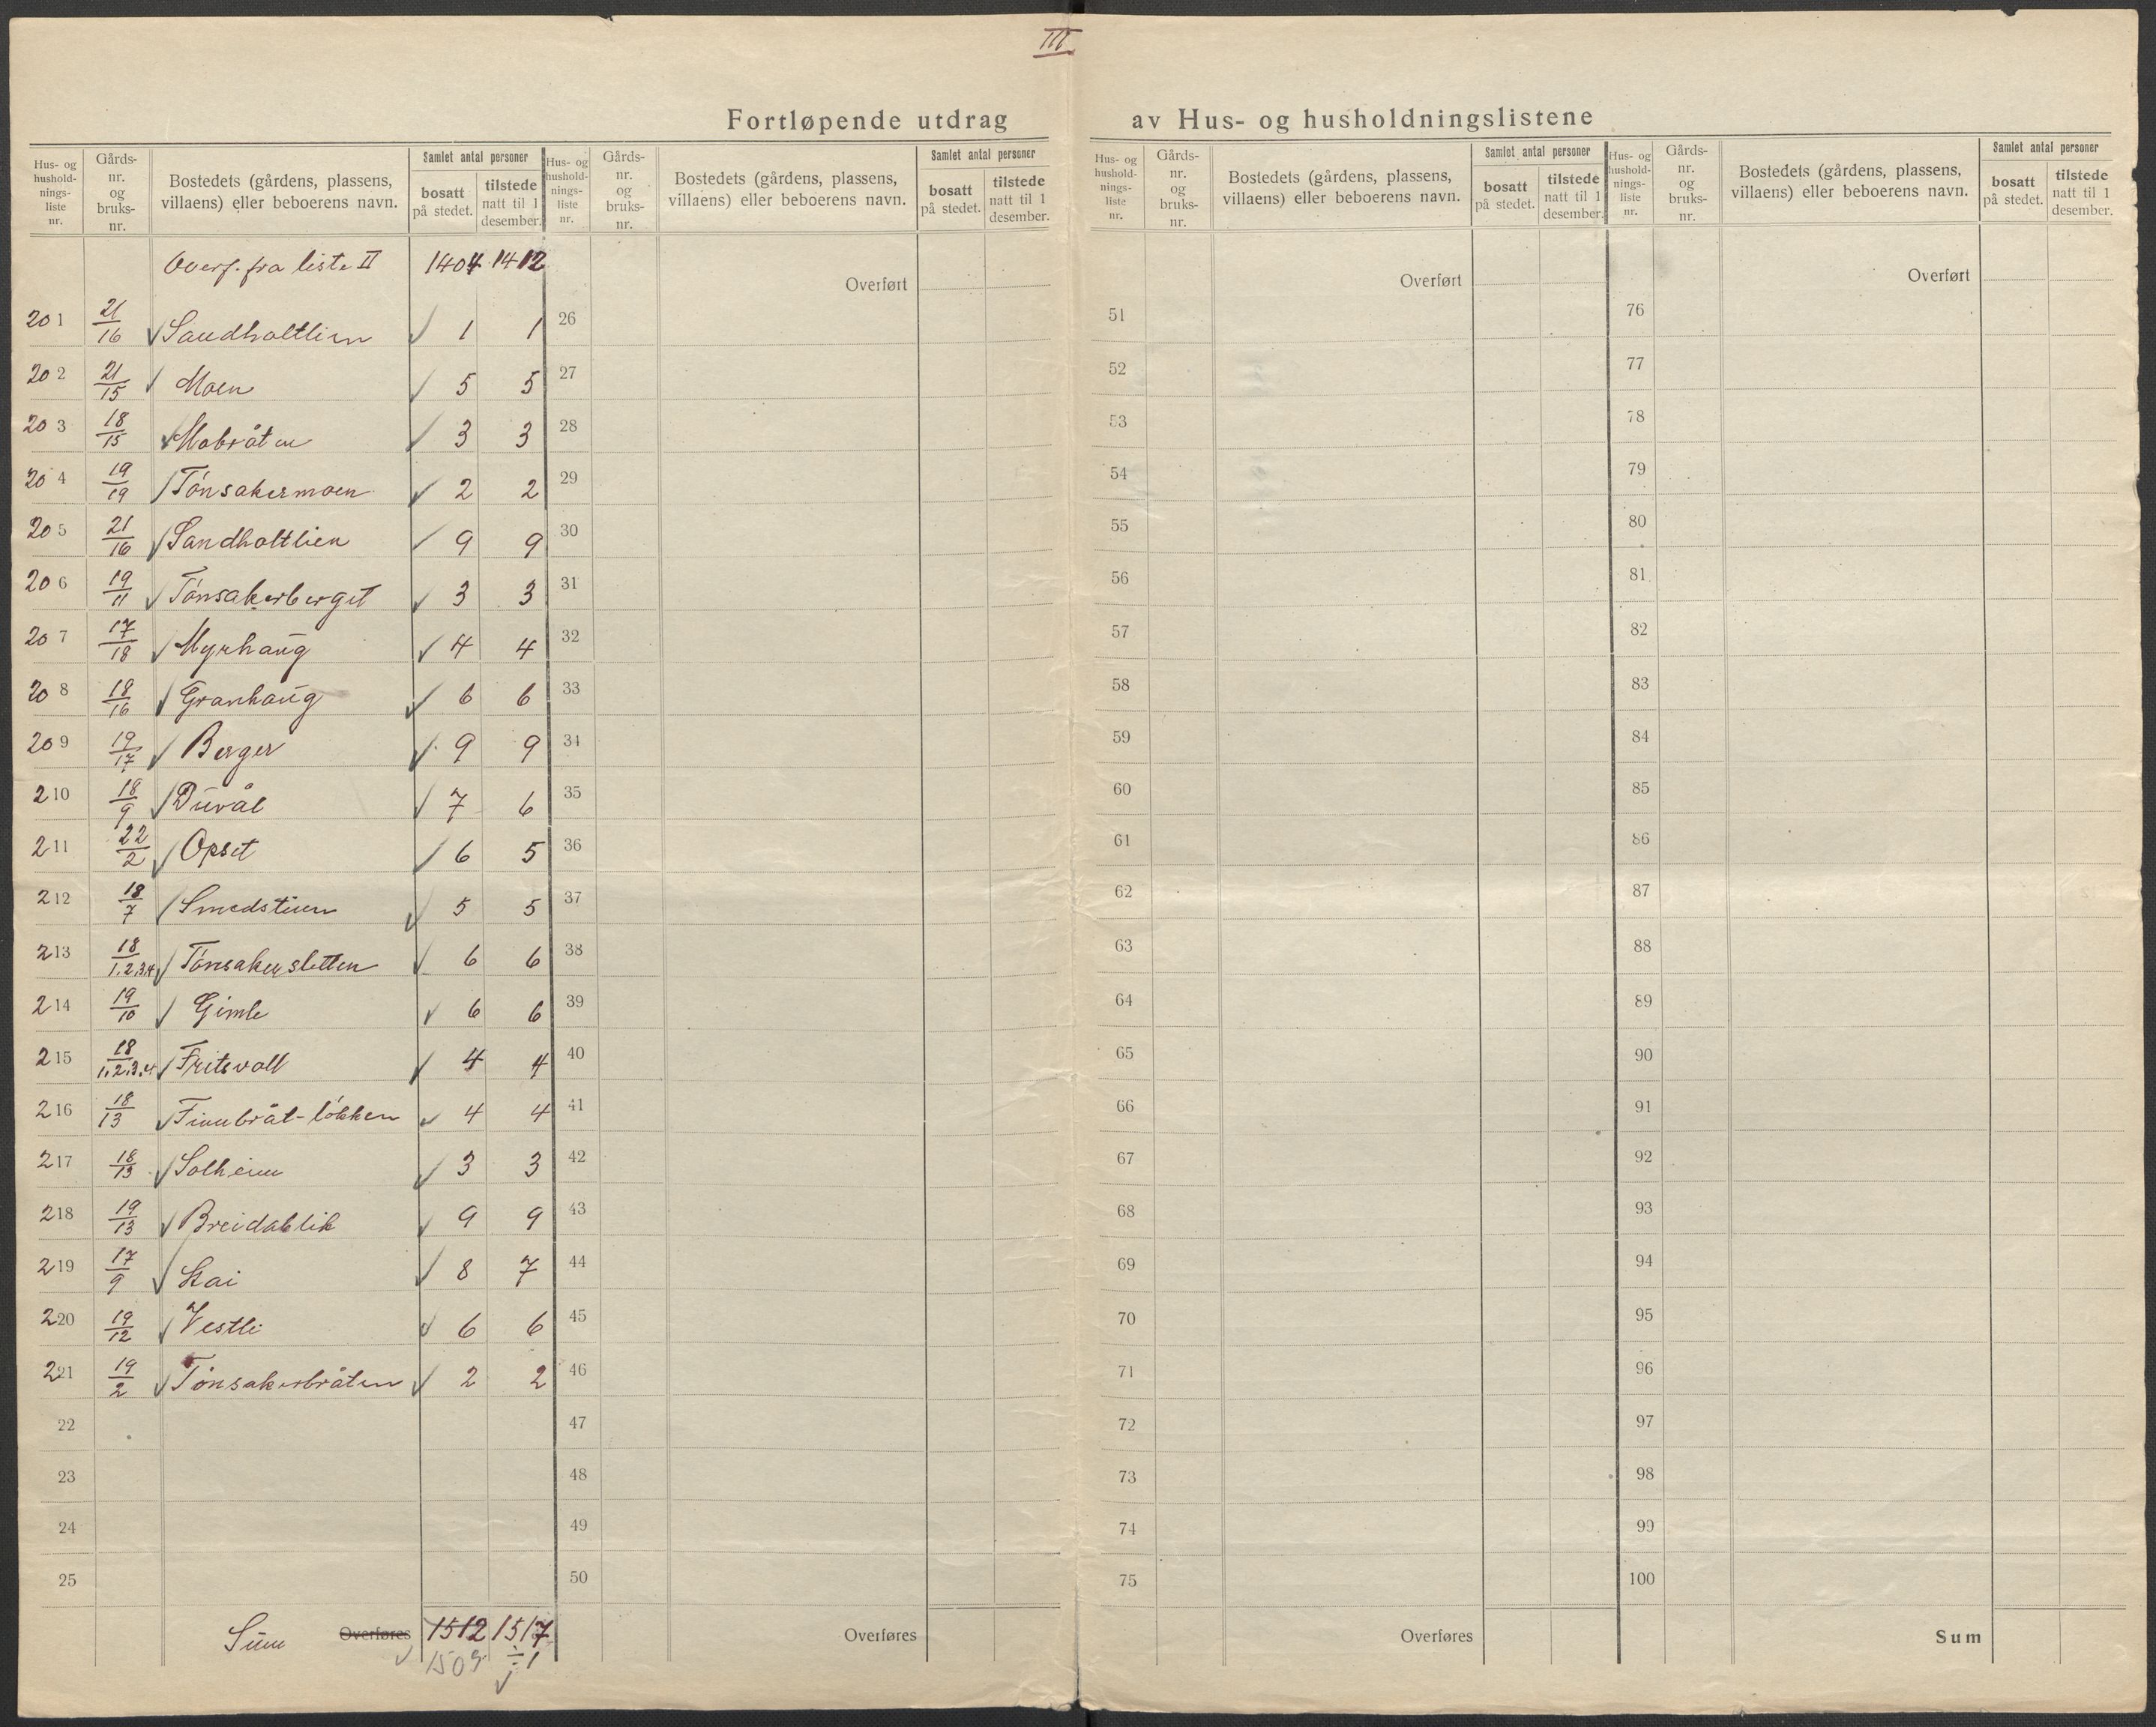 III
Fortløpende utdrag av Hus- og husholdningslistene
Hus- og hushold-nings-liste nr. Gårds-nr. og bruks-nr. Bostedets (gårdens, plassens, villaens) eller beboerens navn. Samlet antal personer bosatt på stedet. tilstede natt til 1 desember.
Hus- og hushold-nings-liste nr. Gårds-nr. og bruks-nr. Bostedets (gårdens, plassens, villaens) eller beboerens navn. Samlet antal personer bosatt på stedet. tilstede natt til 1 desember.
Hus- og hushold-nings-liste nr. Gårds-nr. og bruks-nr. Bostedets (gårdens, plassens, villaens) eller beboerens navn. Samlet antal personer bosatt på stedet. tilstede natt til 1 desember.
Hus- og hushold-nings-liste nr. Gårds-nr. og bruks-nr. Bostedets (gårdens, plassens, villaens) eller beboerens navn. Samlet antal personer bosatt på stedet. tilstede natt til 1 desember.
Overf. fra liste II 1404 1412 Overført Overført Overført
201 21/16 Sandholtlien 1 1 26 51 76
202 21/15 Moen 5 5 27 52 77
203 18/15 Mobråten 3 3 28 53 78
204 19/19 Tónsakermoen 2 2 29 54 79
205 21/16 Sandholtlien 9 9 30 55 80
206 19/11 Tónsakerberget 3 3 31 56 81
207 17/18 Myrhaug 4 4 32 57 82
208 18/16 Granhaug 6 6 33 58 83
209 19/17 Berger 9 9 34 59 84
210 18/9 Duvål 7 6 35 60 85
211 22/2 Opset 6 5 36 61 86
212 18/7 Smedstuen 5 5 37 62 87
213 18/1.2.3.4 Tónsakersletten 6 6 38 63 88
214 19/10 Gimle 6 6 39 64 89
215 18/1.2.3.4 Fritsvoll 4 4 40 65 90
216 18/13 Finnbråt-lókken 4 4 41 66 91
217 18/13 Solheim 3 3 42 67 92
218 19/13 Breidablik 9 9 43 68 93
219 17/9 Stai 8 7 44 69 94
220 19/12 Vestli 6 6 45 70 95
221 19/2 Tónsakerbråten 2 2 46 71 96
22 47 72 97
23 48 73 98
24 49 74 99
25 50 75 100
Sum Overføres 1512 1517 Overføres Overføres Sum
1509 ÷1